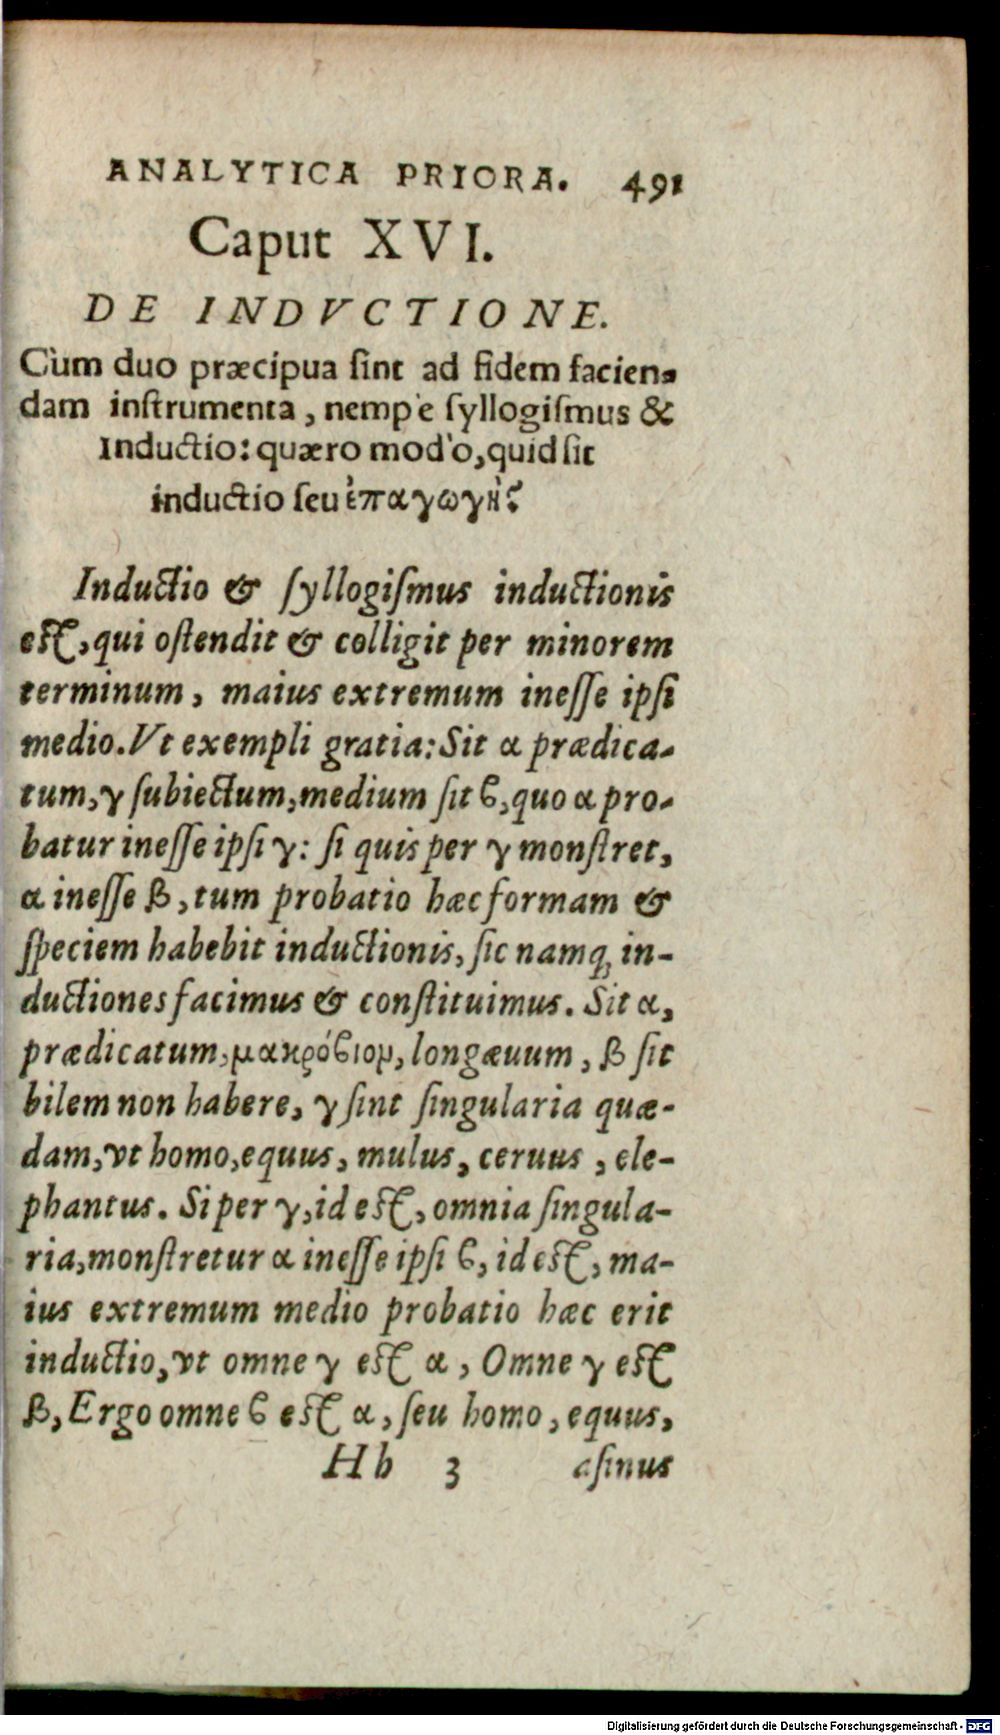 ANALYTICA PRIORA. 491
Caput XVI.
DE INDVCTIONE.
Cùm duo præcipua ſint ad fidem facien-
dam inſtrumenta, nempè ſyllogiſmus &
Inductio: quæro modò, quid ſit
inductio ſeu ἐπαγωγὴ?
Inductio & ſyllogiſmus inductionis
eſt, qui oſtendit & colligit per minorem
terminum, maius extremum ineſſe ipſi
medio. Vt exempli gratia: Sit α prædica-
tum, γ ſubiectum, medium ſit ϐ, quo α pro-
batur ineſſe ipſi γ: ſi quis per γ monſtret,
α ineſſe β, tum probatio hæc formam &
ſpeciem habebit inductionis, ſic namq; in-
ductiones facimus & conſtituimus. Sit α,
prædicatum, μακρόϐιον, longæuum, β ſit
bilem non habere, γ ſint ſingularia quæ-
dam, vt homo, equus, mulus, ceruus, ele-
phantus. Si per γ, id eſt, omnia ſingula-
ria, monſtretur α ineſſe ipſi ϐ, id eſt, ma-
ius extremum medio probatio hæc erit
inductio, vt omne γ eſt α, Omne γ eſt
β, Ergo omne ϐ eſt α, ſeu homo, equus,
Hh 3 aſinus
Digitalisierung gefördert durch die Deutsche Forschungsgemeinschaft - DFG